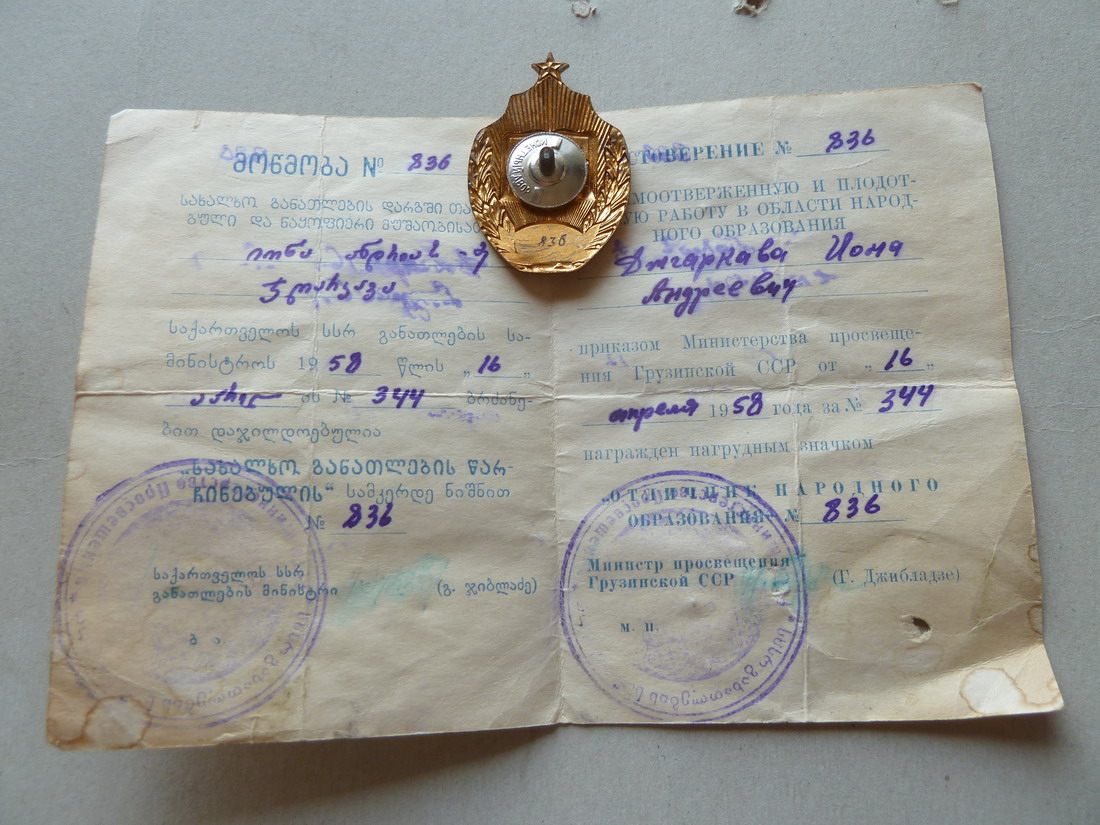 მოწმობა № 836
სახალხო განათლების დარგში
ბული და ნაყოფიერი მუშაობისა
იონა ანდრიას ძე
ჯღარკავა
საქართველოს სსრ განათლების სა-
მინისტროს 1958 წლის „16„
№ 344 ბრძანე-
ბით დაჯილდოებულია
„სახალხო განათლების წარ-
ჩინებულის“ სამკერდე ნიშნით
№ 836
საქართველოს სსრ
განათლების მინისტრი (გ. ჯიბლაძე)
ბ. ა.
836
СТОВЕРЕНИЕ № 836
МООТВЕРЖЕННУЮ И ПЛОДОТ-
УЮ РАБОТУ В ОБЛАСТИ НАРОД-
НОГО ОБРАЗОВАНИЯ
Джгаркава Иона
Андреевич
приказом Министерства просвеще-
ния Грузинской ССР от „16„
апреля 1958 года за № 344
награжден нагрудным значком
„ОТЛИЧНИК НАРОДНОГО
ОБРАЗОВАНИЯ“ № 836
Министр просвещения
Грузинской ССР (Г. Джибладзе)
м. п.